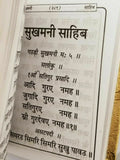 (३८९)
साहिब
सुखमनी साहिब
गउड़ी सुखमनी म: ५
सलोकु
ੴ सतिगुर प्रसादि
आदि गुरए नमह
जुगादि गुरए नमह
सतिगुरए नमह
स्री गुरदेवए नमह
असटपदी
सिमरउ सिमरि सिमरि सुखु पावउ